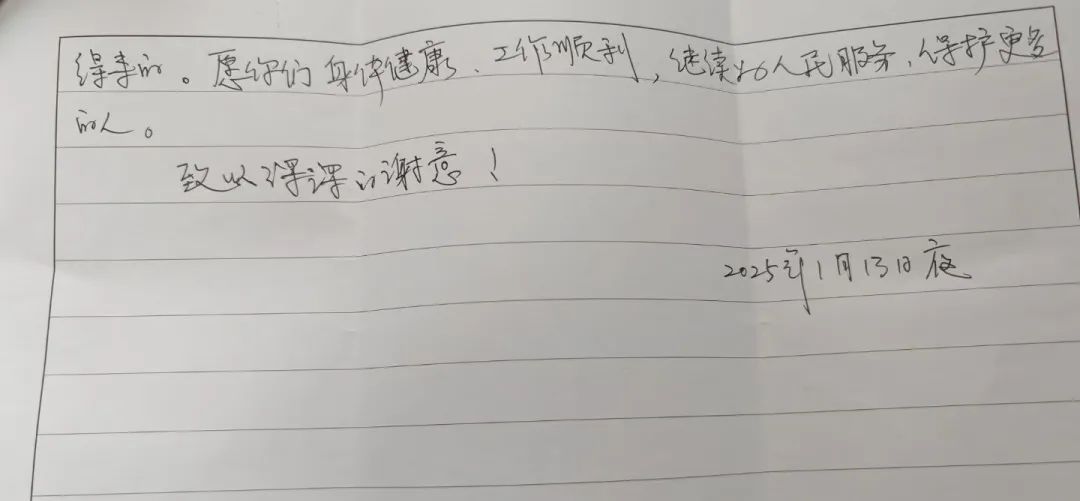 得来的。愿你们身体健康、工作顺利，继续为人民服务，保护更多
的人。
致以深深的谢意！
2025年1月13日夜